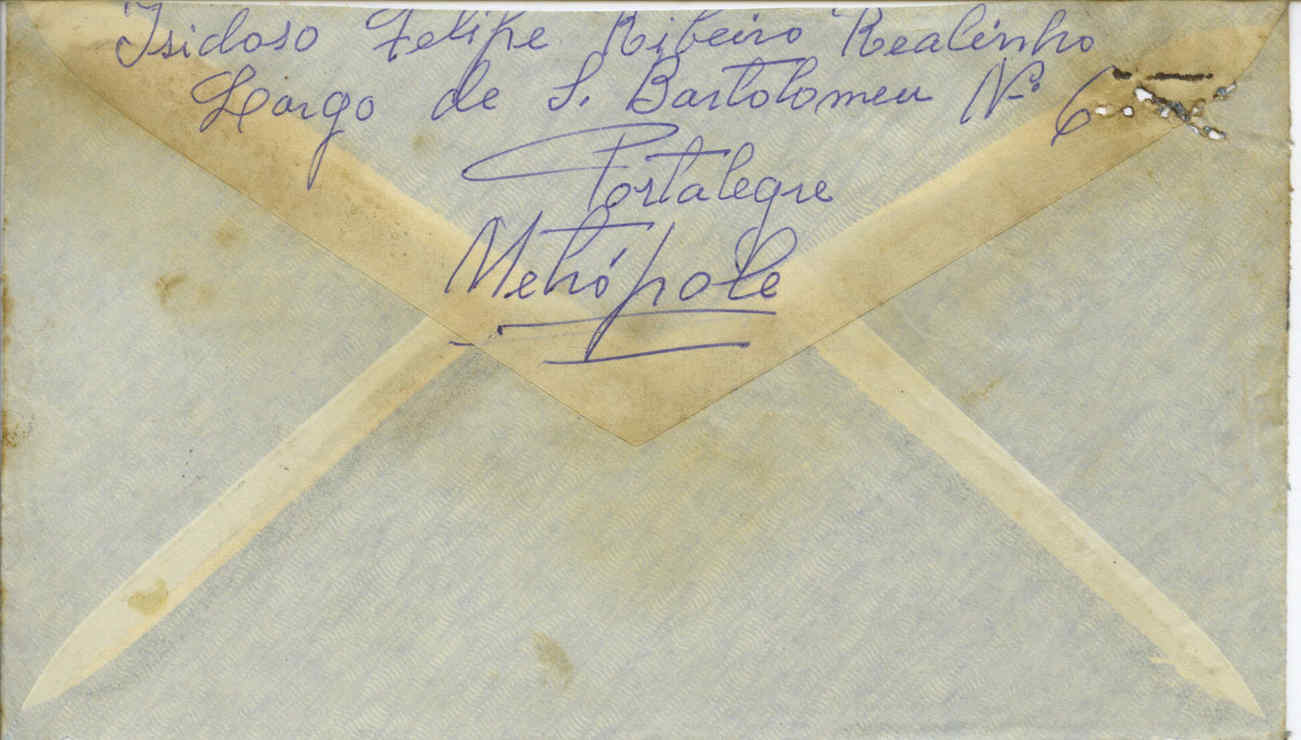 Isidoso Felipe Ribeiro Realinho
Largo de S. Bartolomeu Nº 6
Portalegre
Metrópole